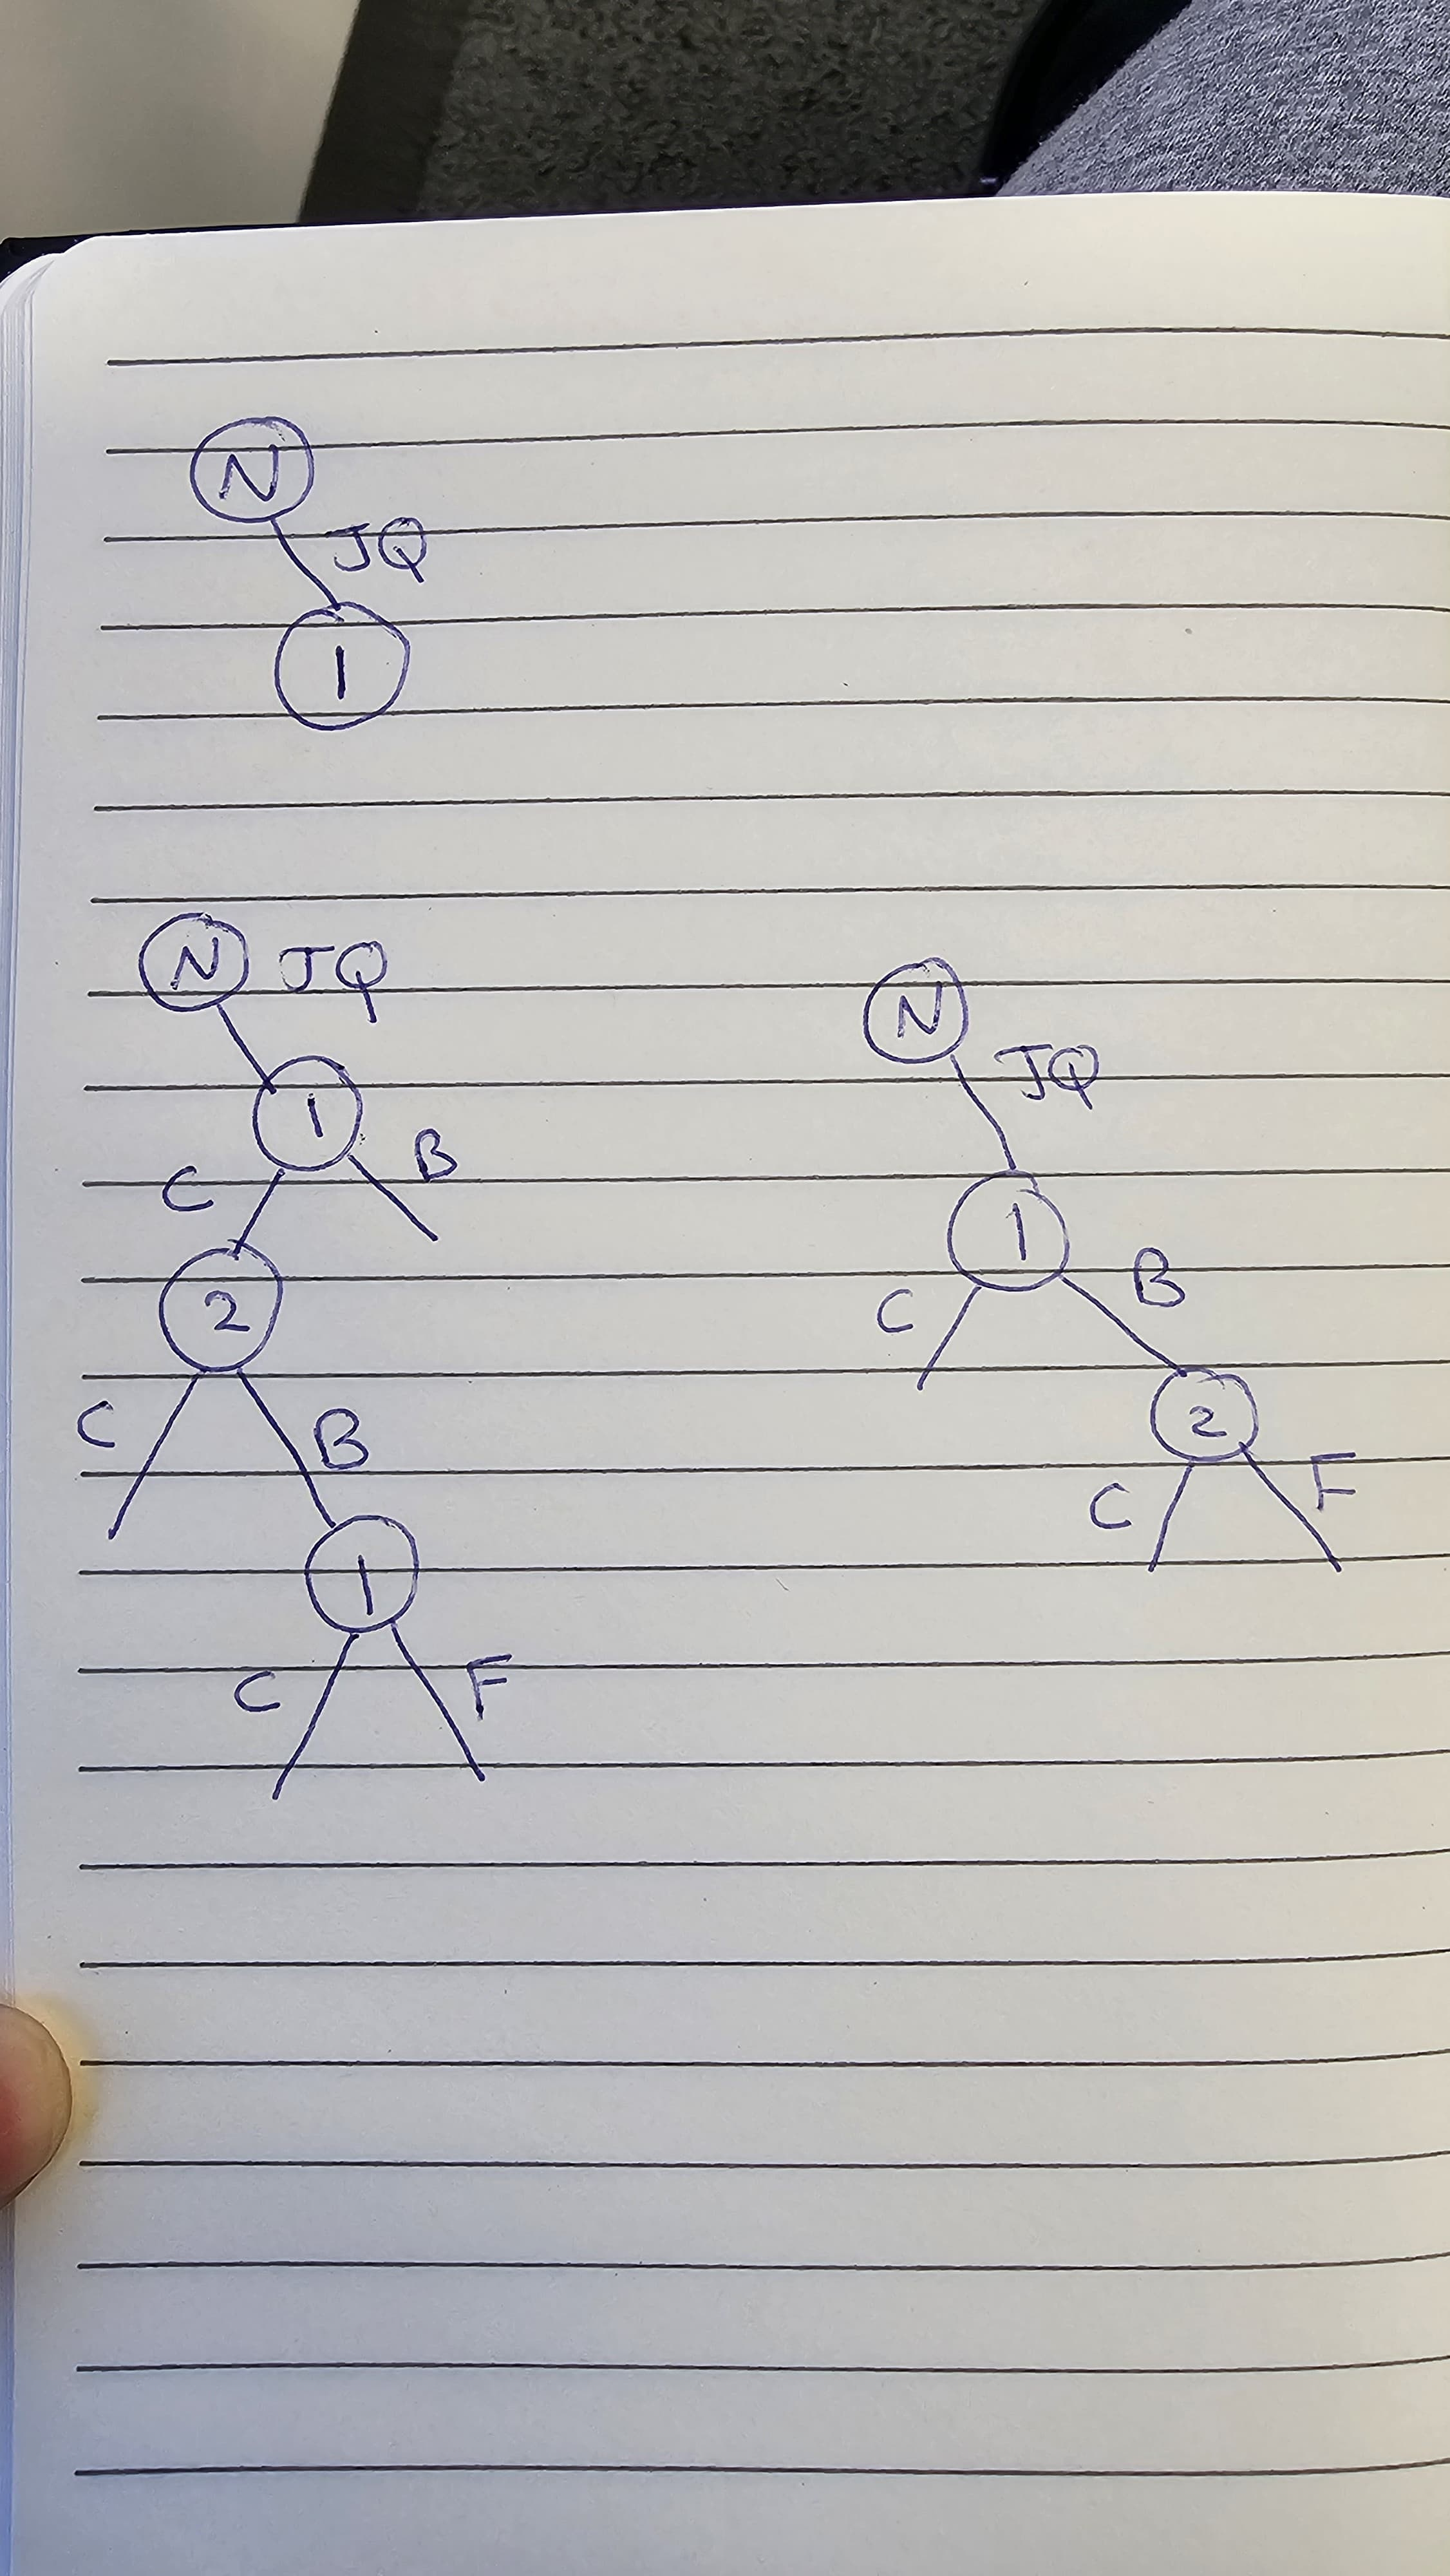 N
JQ
1
N JQ
1
C B
2
C B
1
C F
N
JQ
1
C B
2
C F